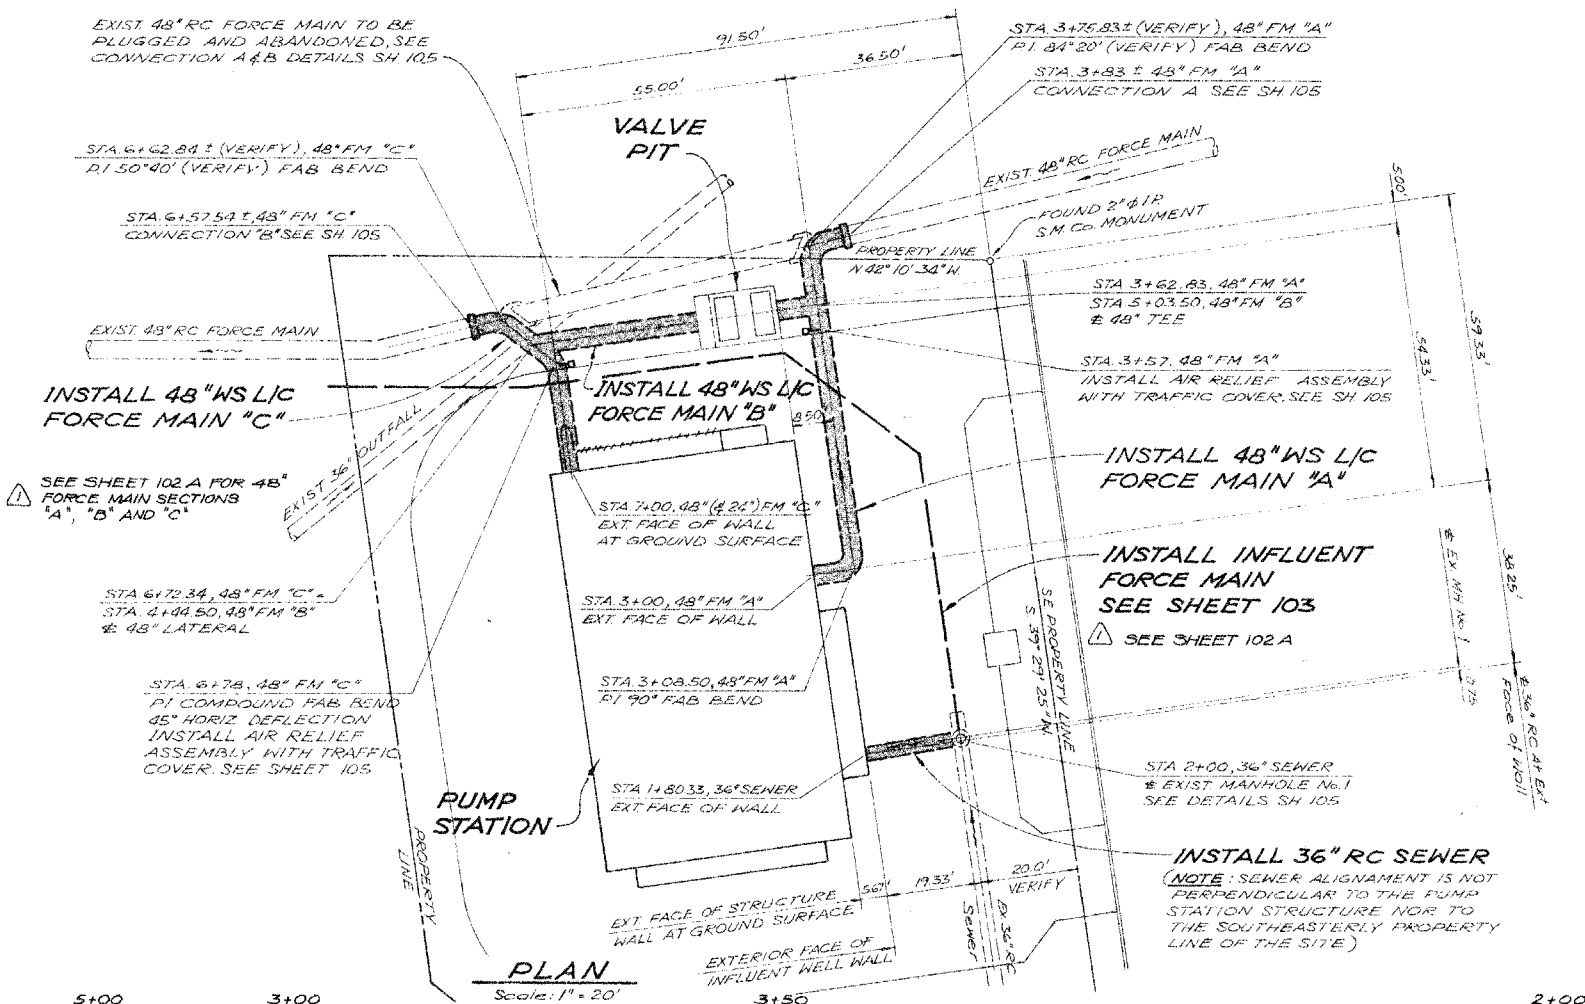 EXIST. 48" RC FORCE MAIN TO BE
PLUGGED AND ABANDONED, SEE
CONNECTION A&B DETAILS SH 105
91.50'
36.50'
55.00'
STA. 3+75.83± (VERIFY), 48" FM "A"
P.I. 84°20' (VERIFY) FAB BEND
STA. 3+83± 48" FM "A"
CONNECTION A SEE SH. 105
VALVE
PIT
STA. 6+62.84± (VERIFY), 48" FM "C"
P.I 50°40' (VERIFY) FAB BEND
STA. 6+57.54±, 48" FM "C"
CONNECTION "B" SEE SH. 105
EXIST. 48" RC FORCE MAIN
5.00'
FOUND 2" ⌀ I.P.
S.M. Co. MONUMENT
PROPERTY LINE
N 42° 10' 34" W.
STA 3+62.83, 48" FM "A"
STA. 5+03.50, 48" FM "B"
℄ 48" TEE
59.33'
54.33'
EXIST. 48" RC FORCE MAIN
STA. 3+57, 48" FM "A"
INSTALL AIR RELIEF ASSEMBLY
WITH TRAFFIC COVER. SEE SH 105
INSTALL 48" WS L/C
FORCE MAIN "C"
INSTALL 48" WS L/C
FORCE MAIN "B"
8.50'
INSTALL 48" WS L/C
FORCE MAIN "A"
EXIST 36" OUTFALL
1 SEE SHEET 102 A FOR 48"
FORCE MAIN SECTIONS
"A", "B" AND "C"
STA. 7+00, 48" (℄ 24") FM "C"
EXT. FACE OF WALL
AT GROUND SURFACE
INSTALL INFLUENT
FORCE MAIN
SEE SHEET 103
1 SEE SHEET 102 A
℄ EX. MH No. 1
38.25'
℄ 36" RC At Ext
Face of Wall
STA. 6+72.34, 48" FM "C" =
STA. 4+44.50, 48" FM "B"
℄ 48" LATERAL
STA. 3+00, 48" FM "A"
EXT. FACE OF WALL
SE PROPERTY LINE
S 39° 29' 25" W
STA. 6+78, 48" FM "C"
P.I COMPOUND FAB BEND
45° HORIZ DEFLECTION
INSTALL AIR RELIEF
ASSEMBLY WITH TRAFFIC
COVER. SEE SHEET 105
STA. 3+08.50, 48" FM "A"
P.I 90° FAB BEND
STA. 1+80.33, 36" SEWER
EXT. FACE OF WALL
STA 2+00, 36" SEWER
℄ EXIST. MANHOLE No. 1
SEE DETAILS SH 105
PUMP
STATION
PROPERTY
LINE
INSTALL 36" RC SEWER
(NOTE: SEWER ALIGNAMENT IS NOT
PERPENDICULAR TO THE PUMP
STATION STRUCTURE NOR TO
THE SOUTHEASTERLY PROPERTY
LINE OF THE SITE)
5.67'
19.33'
20.0'
VERIFY
EXT. FACE OF STRUCTURE
WALL AT GROUND SURFACE
EXTERIOR FACE OF
INFLUENT WELL WALL
EX 36" RC
Sewer
PLAN
Scale: 1" = 20'
5+00
3+00
3+50
2+00